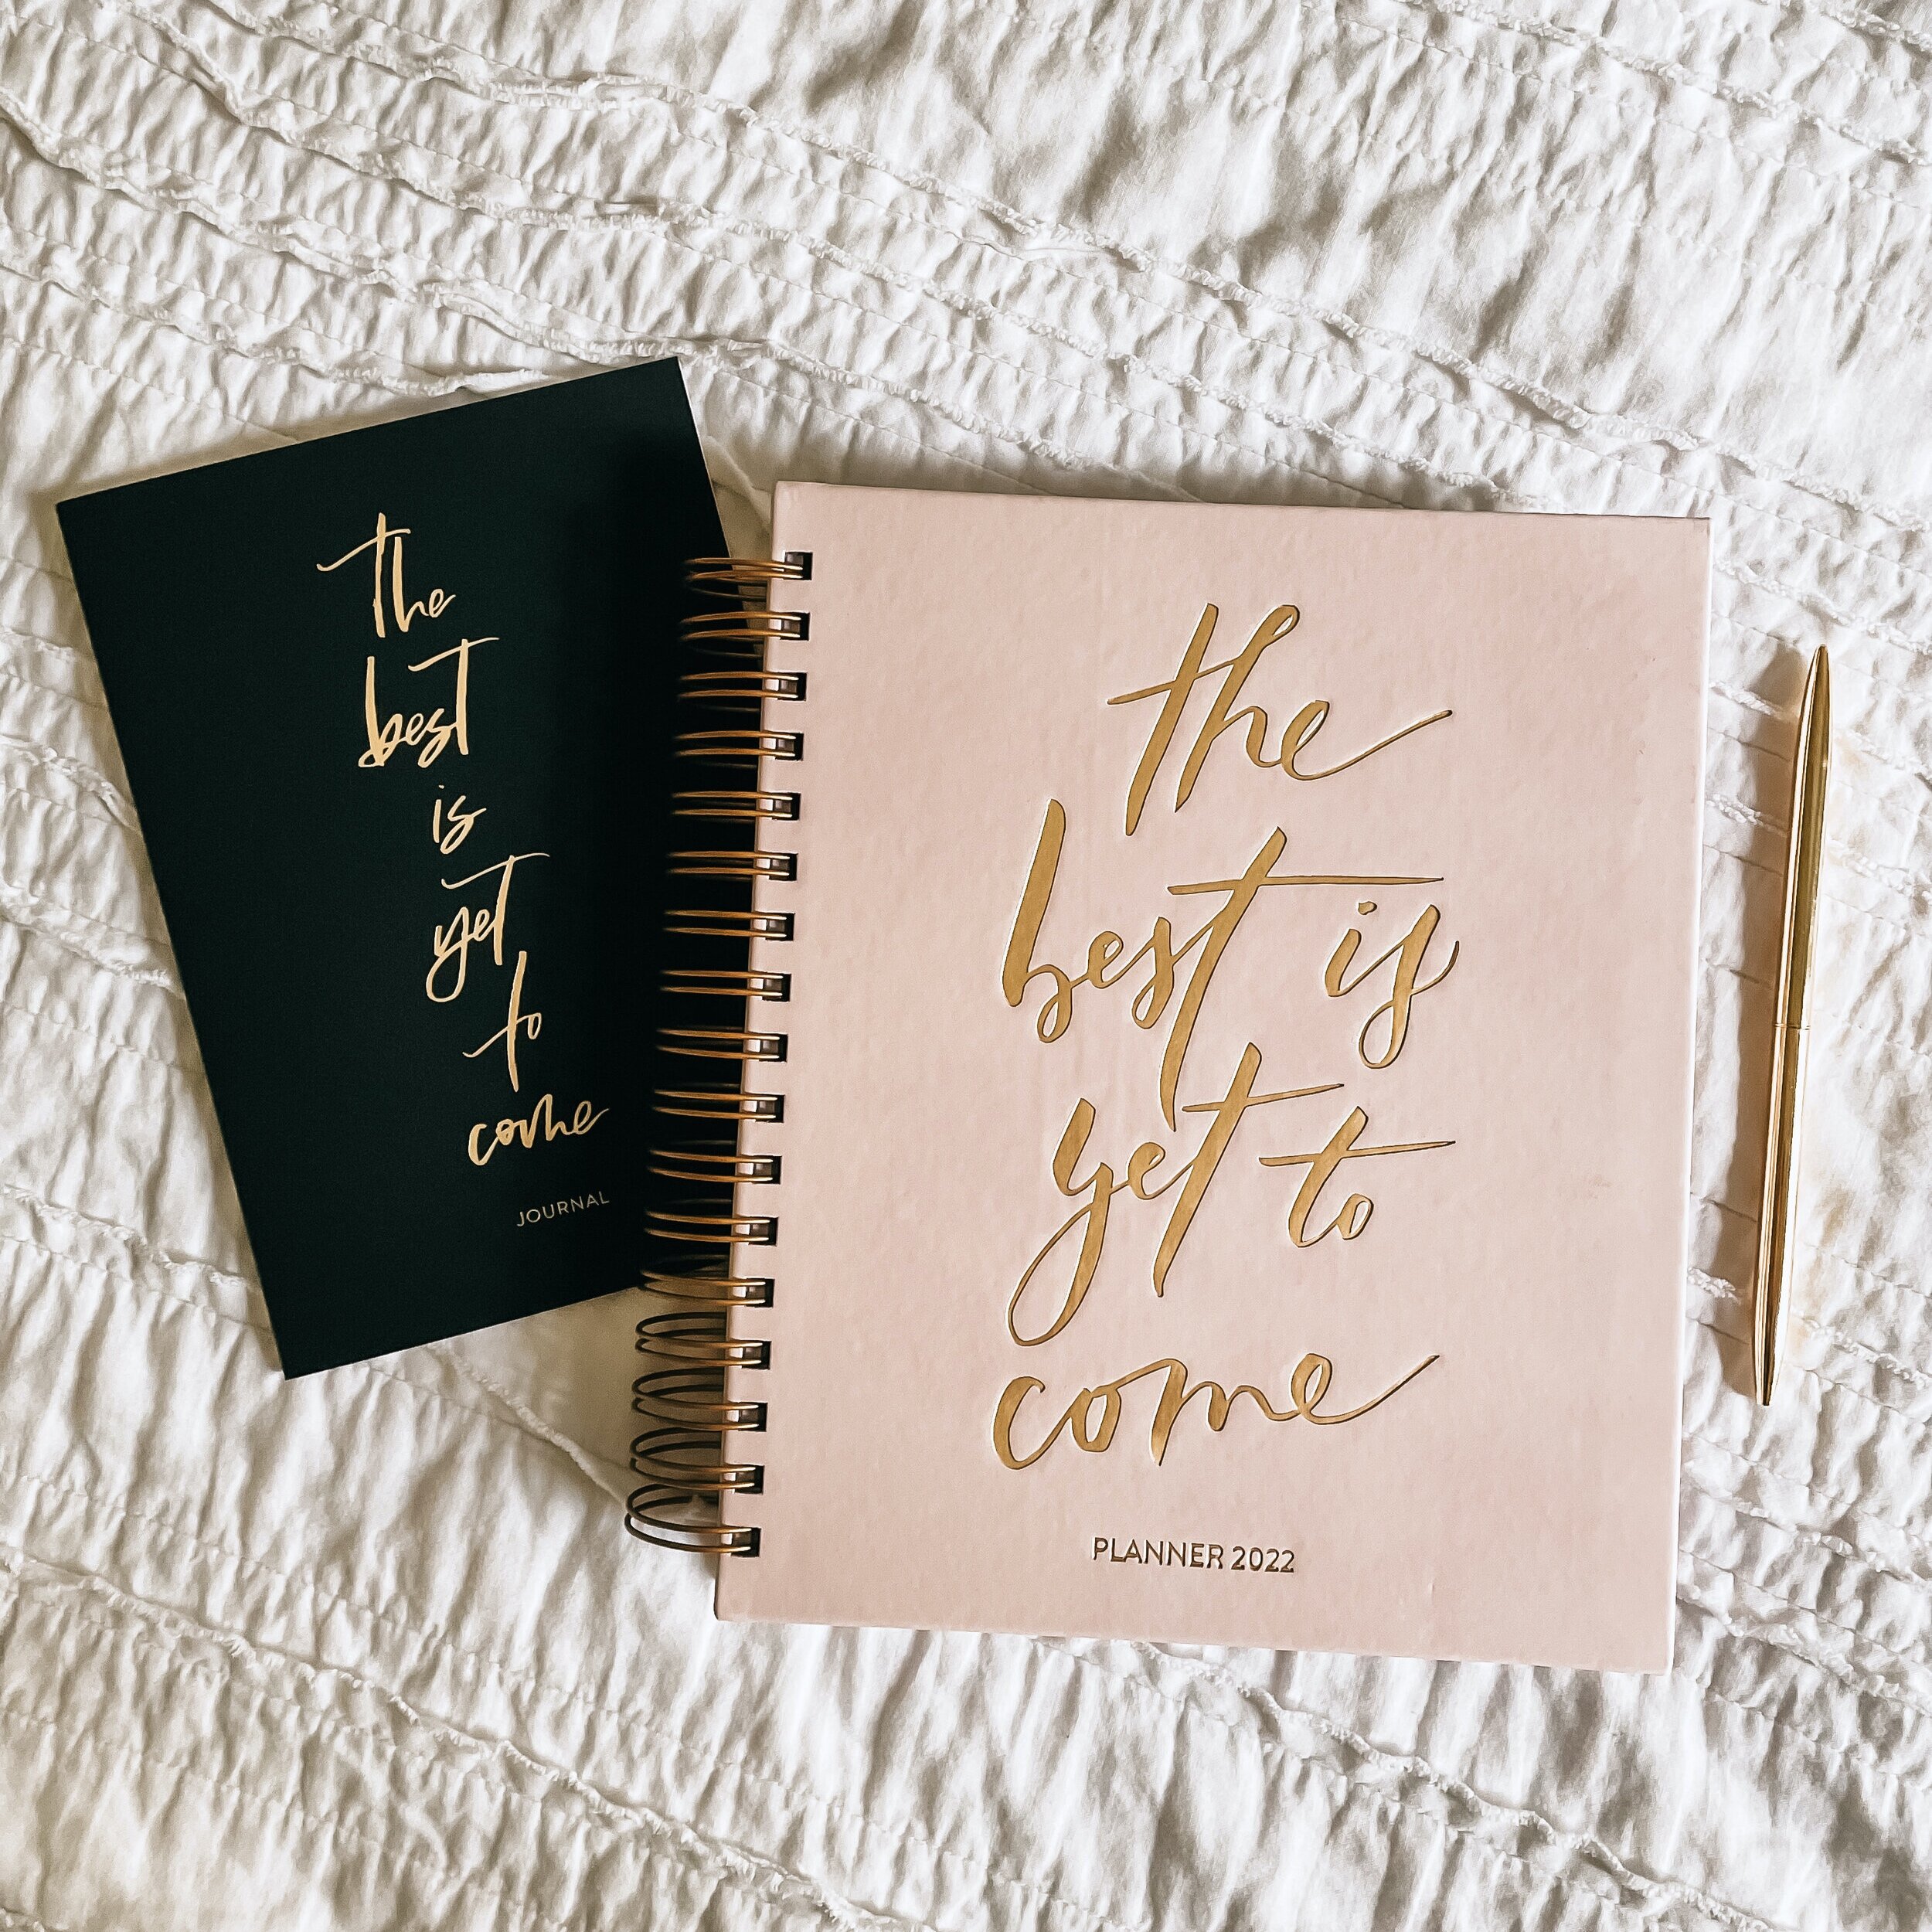 the
best
is
yet
to
come
JOURNAL
the
best is
yet to
come
PLANNER 2022